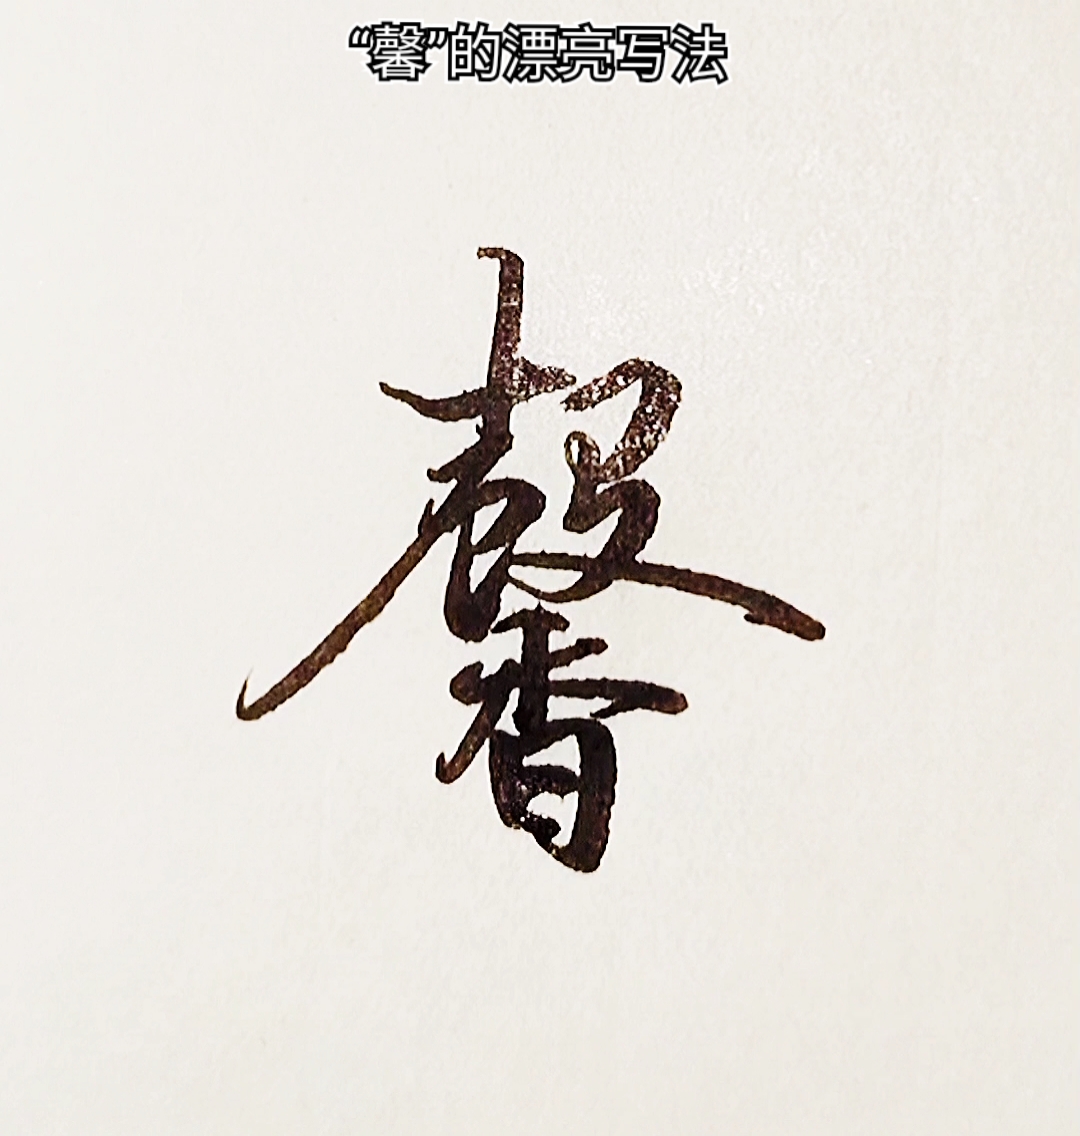 “馨”的漂亮写法
馨